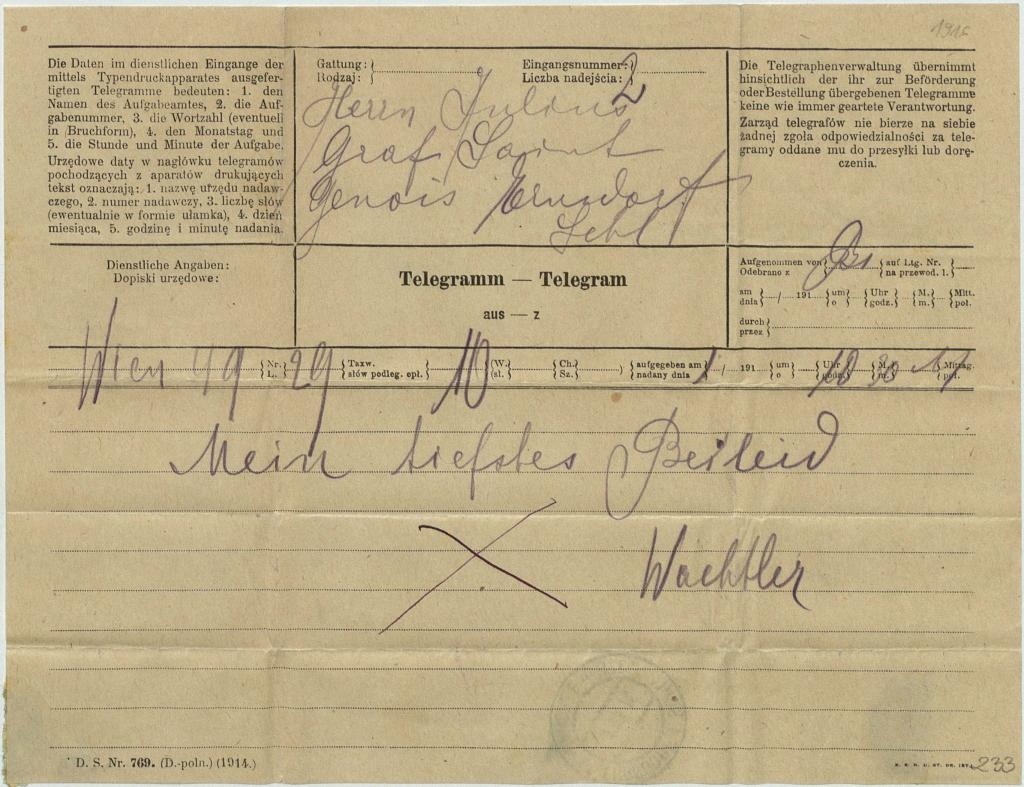 1916
Die Daten im dienstlichen Eingange der
mittels Typendruckapparates ausgefer-
tigten Telegramme bedeuten: 1. den
Namen des Aufgabeamtes, 2. die Auf-
gabenummer, 3. die Wortzahl (eventuell
in Bruchform), 4. den Monatstag und
5. die Stunde und Minute der Aufgabe.
Urzędowe daty w nagłówku telegramów
pochodzących z aparatów drukujących
tekst oznaczają: 1. nazwę urzędu nadaw-
czego, 2. numer nadawczy, 3. liczbę słów
(ewentualnie w formie ułamka), 4. dzień
miesiąca, 5. godzinę i minutę nadania.
Gattung:
Rodzaj:
Eingangsnummer:
Liczba nadejścia:
2
Herrn Julius
Graf Saint
Genois Ernsdorf
Schl
Die Telegraphenverwaltung übernimmt
hinsichtlich der ihr zur Beförderung
oder Bestellung übergebenen Telegramme
keine wie immer geartete Verantwortung.
Zarząd telegrafów nie bierze na siebie
żadnej zgoła odpowiedzialności za tele-
gramy oddane mu do przesyłki lub dorę-
czenia.
Dienstliche Angaben:
Dopiski urzędowe:
Telegramm — Telegram
aus — z
Aufgenommen von
Odebrano z
auf Ltg. Nr.
na przewod. l.
am
dnia
/ 191
um
o
Uhr
godz.
M.
m.
Mitt.
poł.
durch
przez
Wien 49 29 10 1 10 30 M
Nr.
L.
Taxw.
słów podleg. opł.
(W.
(sł.
Ch.
Sz.
)
aufgegeben am
nadany dnia
/ 191
um
o
Uhr
godz.
M.
m.
Mittag.
poł.
Mein tiefstes Beileid
Wachtler
D. S. Nr. 769. (D.-poln.) (1914.)
233